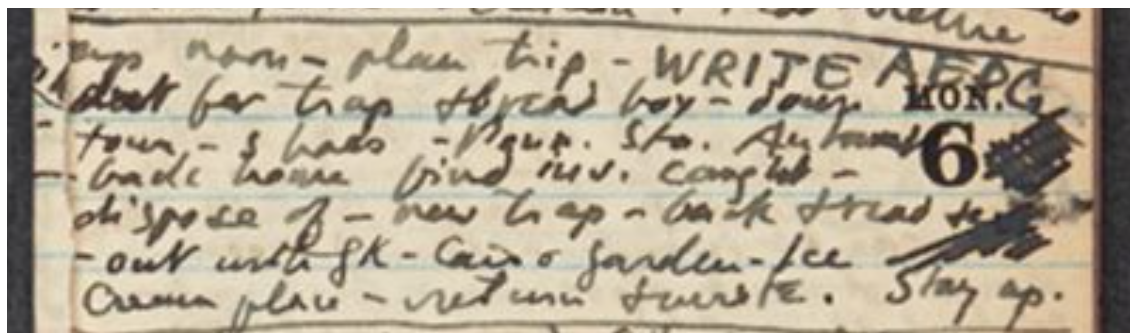 up noon - plan trip - WRITE AEDC
out for trap & bread box - down MON.
town - shoes - Penn. Sta. Automat 6
- back home find inv. caught -
dispose of - new trap - back & read
- out with SK - Cairo Garden - Ice
Cream place - return & write. Stay up.